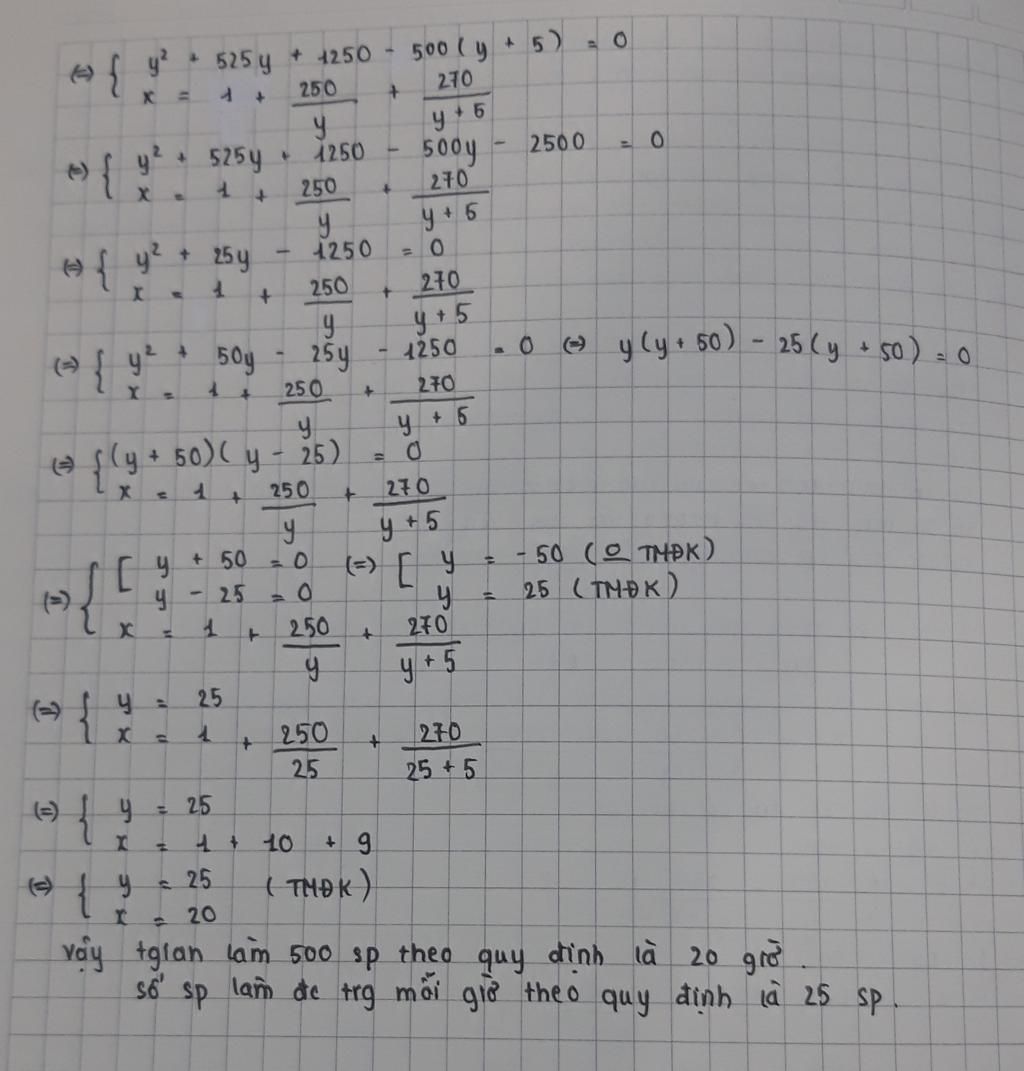 (=) { y² + 525y + 1250 - 500(y + 5) = 0
x = 1 + 250/y + 270/(y+5)
(=) { y² + 525y + 1250 - 500y - 2500 = 0
x = 1 + 250/y + 270/(y+5)
(=) { y² + 25y - 1250 = 0
x = 1 + 250/y + 270/(y+5)
(=) { y² + 50y - 25y - 1250 = 0 (=) y(y + 50) - 25(y + 50) = 0
x = 1 + 250/y + 270/(y+5)
(=) { (y + 50)(y - 25) = 0
x = 1 + 250/y + 270/(y+5)
(=) { [ y + 50 = 0 (=) [ y = -50 (O TMĐK)
y - 25 = 0 y = 25 (TMĐK)
x = 1 + 250/y + 270/(y+5)
(=) { y = 25
x = 1 + 250/25 + 270/(25+5)
(=) { y = 25
x = 1 + 10 + 9
(=) { y = 25 (TMĐK)
x = 20
vậy tgian làm 500 sp theo quy định là 20 giờ.
số sp làm đc trg mỗi giờ theo quy định là 25 sp.